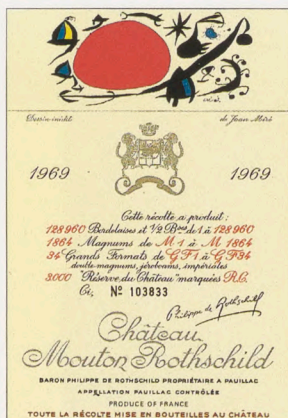 Dessin inédit de Joan Miró
1969 1969
Cette récolte a produit :
128960 Bordelaises et ½ Bses de 1 à 128960
1864 Magnums de M 1 à M 1864
34 Grands Formats de G F 1 à G F 34
double magnums, jéroboams, impériales
3000 "Réserve du Château" marquées R.C.
Ci, Nº 103833
Philippe de Rothschild
Château
Mouton Rothschild
BARON PHILIPPE DE ROTHSCHILD PROPRIÉTAIRE A PAUILLAC
APPELLATION PAUILLAC CONTRÔLÉE
PRODUCE OF FRANCE
TOUTE LA RÉCOLTE MISE EN BOUTEILLES AU CHÂTEAU